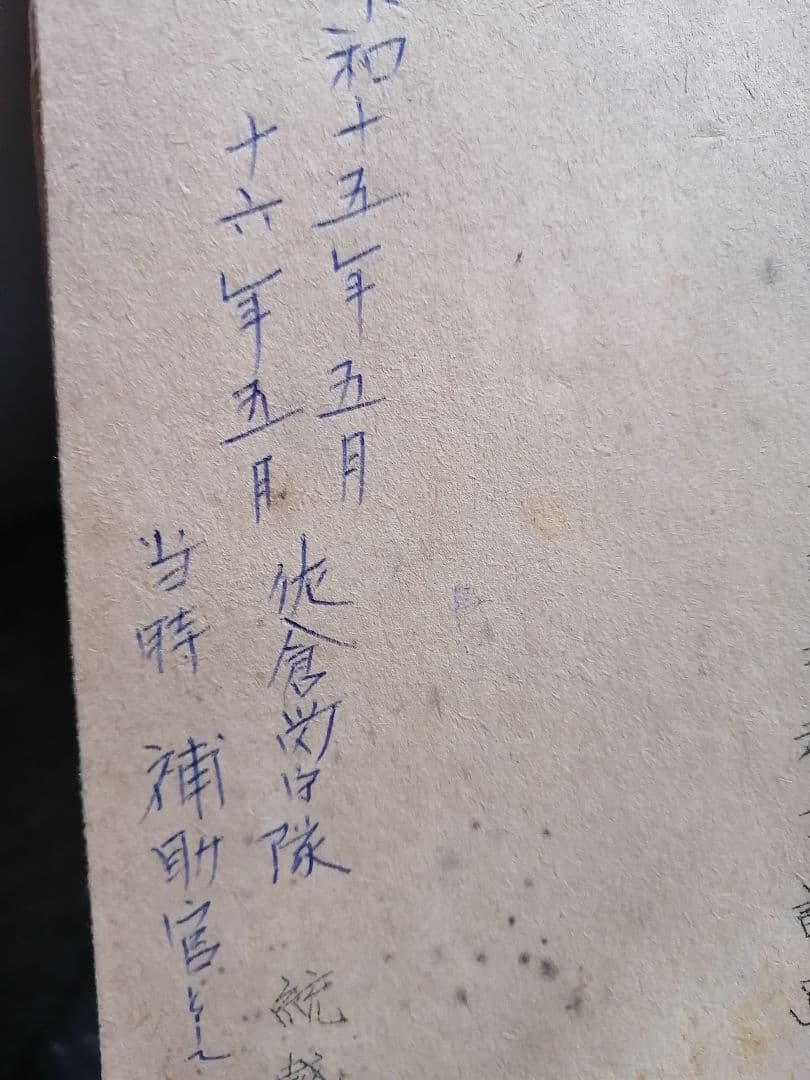 和十五年五月
十六年五月
佐倉営内隊
当時 補助官
統